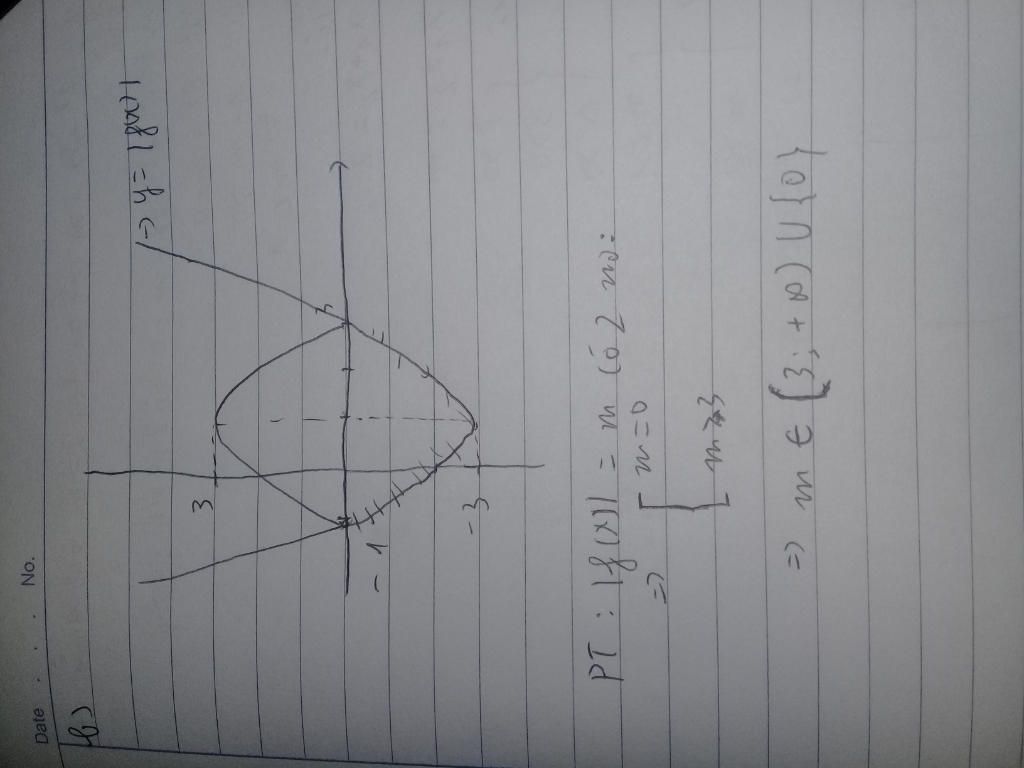 Date . . . No.
b)
=) y = |f(x)|
3
-1
3
-3
PT : |f(x)| = m có 2 no:
=) [ m = 0
m > 3
=) m ∈ (3; +∞) ∪ {0}